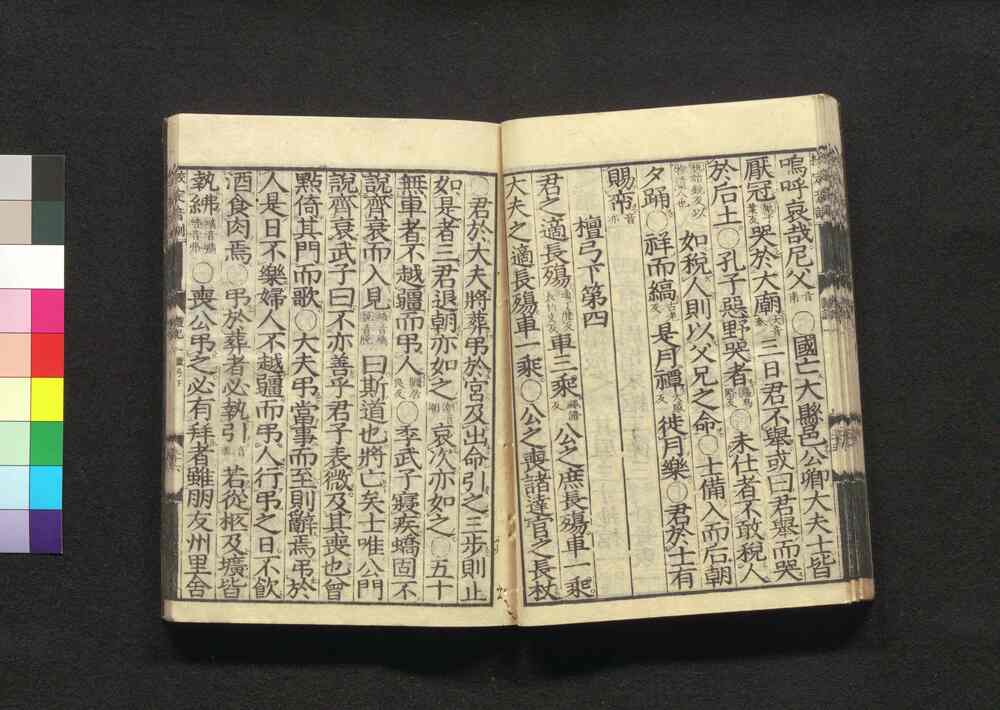 嗚呼哀哉尼父○國亡大縣邑公卿大夫士皆
厭冠哭於大廟三日君不舉或曰君舉而哭
於后土○孔子惡野哭者○未仕者不敢稅人
如稅人則以父兄之命○士備入而后朝
夕踊○祥而縞是月禫徙月樂○君於士有
賜帟
檀弓下第四
君之適長殤車三乘公之庶長殤車一乘
大夫之適長殤車一乘○公之喪諸達官之長杖
○君於大夫將葬弔於宮及出命引之三步則止
如是者三君退朝亦如之哀次亦如之○五十
無車者不越疆而弔人○季武子寢疾蟜固不
說齊衰而入見曰斯道也將亡矣士唯公門
說齊衰武子曰不亦善乎君子表微及其喪也曾
點倚其門而歌○大夫弔當事而至則辭焉弔於
人是日不樂婦人不越疆而弔人行弔之日不飲
酒食肉焉○弔於葬者必執引若從柩及壙皆
執紼○喪公弔之必有拜者雖朋友州里舍